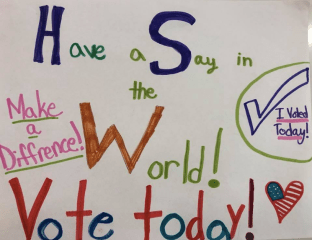 Have a Say in
the
World!
Make
a
Diffrence!
I Voted
Today!
Vote today!